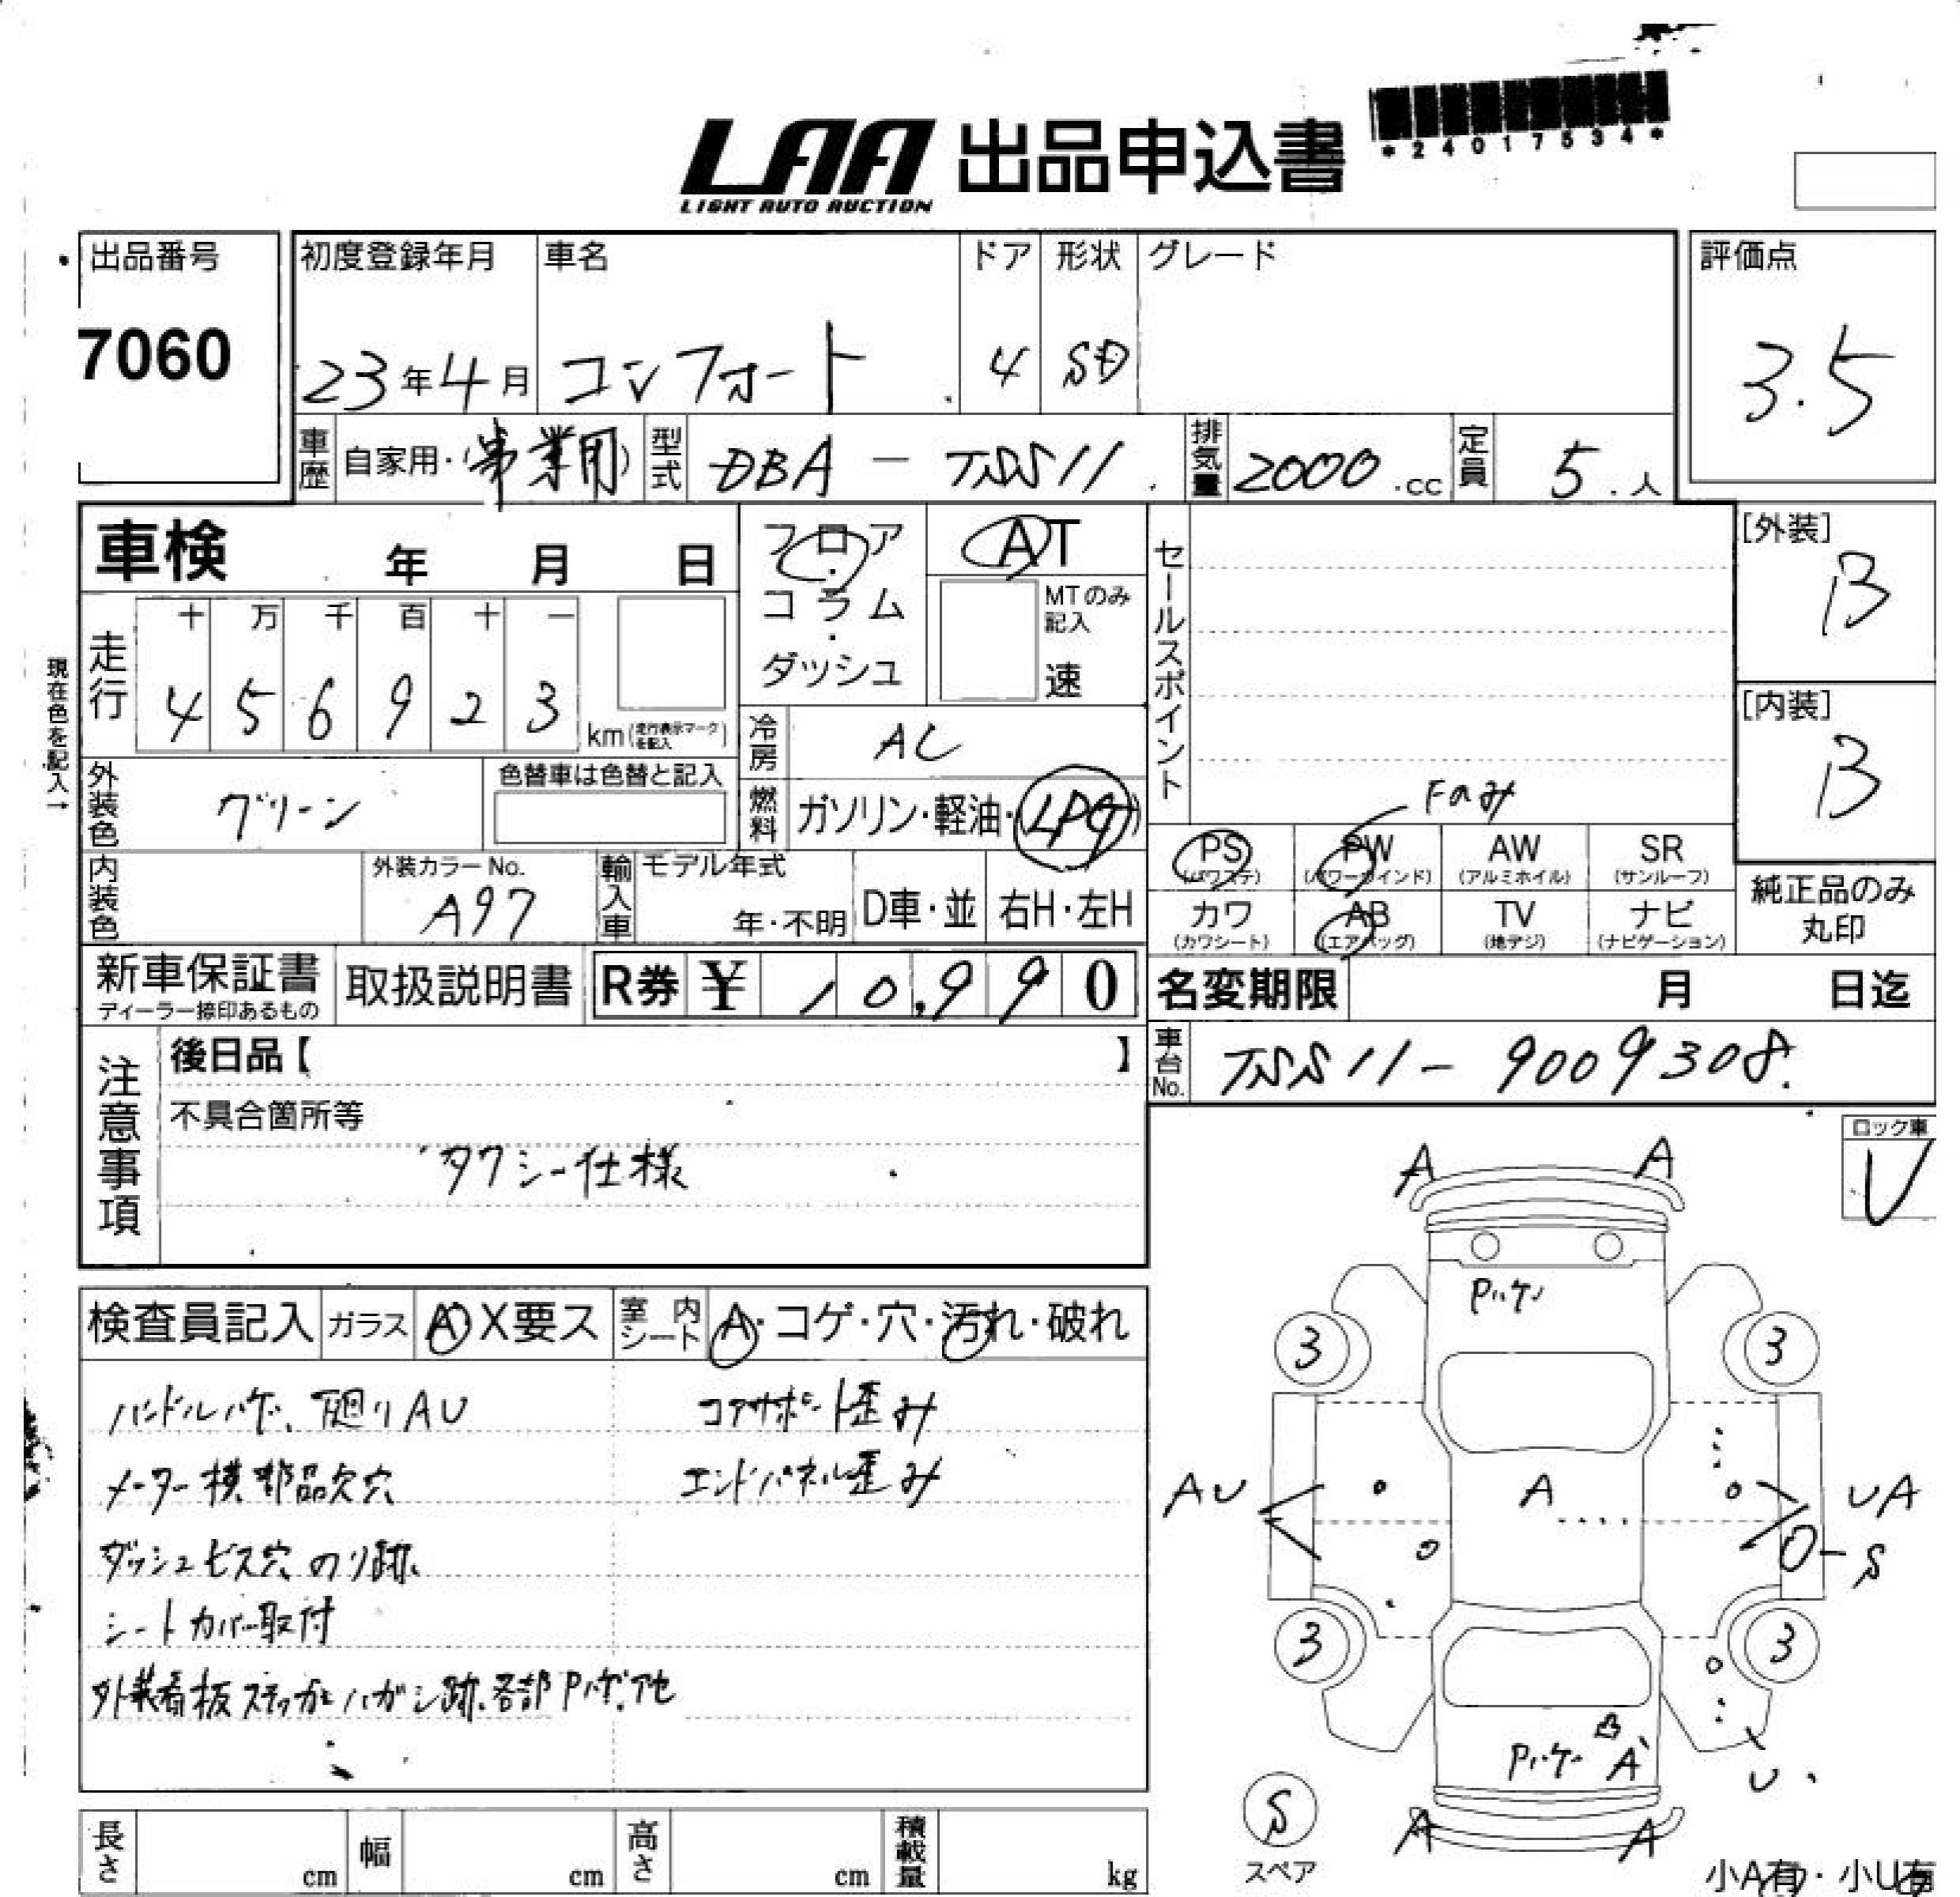 *24017534*
LAA 出品申込書
LIGHT AUTO AUCTION
出品番号
7060
初度登録年月
23年4月
車名
コンフォート
ドア
4
形状
SD
グレード
評価点
3.5
車歴 自家用・(事業用)
型式 DBA - TSS11
排気量 2000.cc
定員 5.人
車検 年 月 日
フロア・コラム・ダッシュ
AT
MTのみ記入
速
セールスポイント
[外装]
B
現在色を記入→
走行
十 万 千 百 十 一
4 5 6 9 2 3
km(走行表示マークを記入)
冷房 AC
[内装]
B
外装色 グリーン
色替車は色替と記入
燃料 ガソリン・軽油・(LPG)
Fのみ
PS (パワステ)
PW (パワーウインド)
AW (アルミホイル)
SR (サンルーフ)
内装色
外装カラーNo.
A97
輸入車
モデル年式
年・不明
D車・並
右H・左H
カワ (カワシート)
AB (エアバッグ)
TV (地デジ)
ナビ (ナビゲーション)
純正品のみ
丸印
新車保証書
ディーラー捺印あるもの
取扱説明書
R券 ¥ 10,990
名変期限 月 日迄
注意事項
後日品【 】
車台No. TSS11-9009308.
不具合箇所等
タクシー仕様
ロック車
レ
検査員記入
ガラス A・X要ス
室内シート A・コゲ・穴・汚れ・破れ
ハンドルハゲ、下廻りAU
コアサポート歪み
メーター横部品欠穴
エンドパネル歪み
ダッシュビス穴、のり跡、
シートカバー取付
外装看板ステッカーハガシ跡、各部Pハゲ、アセ
A A
Pハゲ
3 3
AU A UA
S
3 3
Pハゲ A
U
S
スペア
A A
小A有・小U有
長さ cm
幅 cm
高さ cm
積載量 kg